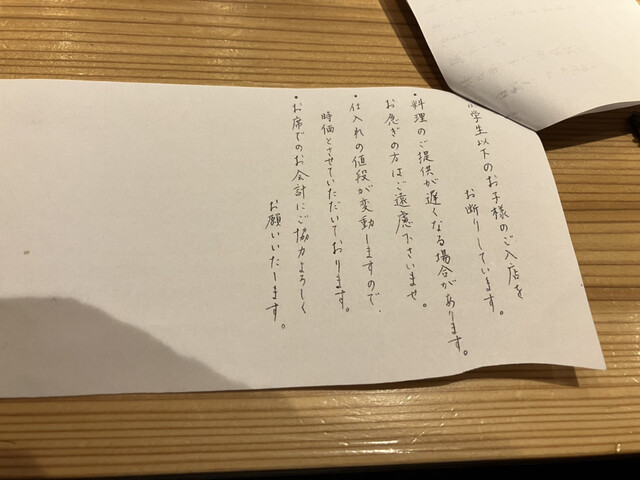 学生以下のお子様のご入店を
お断りしています。
・料理のご提供が遅くなる場合があります。
お急ぎの方はご遠慮下さいませ。
・仕入れの値段が変動しますので、
時価とさせていただいております。
・お席でのお会計にご協力よろしく
お願いいたします。